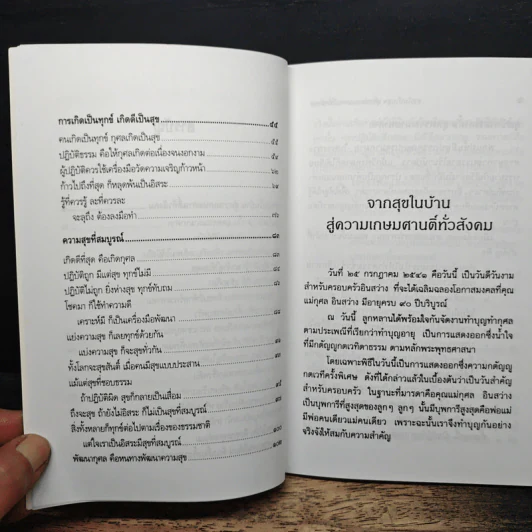 การเกิดเป็นทุกข์ เกิดดีเป็นสุข ๔๕
คนเกิดเป็นทุกข์ กุศลเกิดเป็นสุข ๔๕
ปฏิบัติธรรม คือให้กุศลเกิดต่อเนื่องจนงอกงาม
ผู้ปฏิบัติควรใช้เครื่องมือวัดความเจริญก้าวหน้า
ก้าวไปถึงที่สุด ก็หลุดพ้นเป็นอิสระ
รู้ที่ควรรู้ ละที่ควรละ
จะลุถึง ต้องลงมือทำ
ความสุขที่สมบูรณ์
เกิดดีที่สุด คือเกิดกุศล
ปฏิบัติถูก มีแต่สุข ทุกข์ไม่มี
ปฏิบัติไม่ถูก ยิ่งห่างสุข ทุกข์ทับถม
โชคมา ก็ใช้ทำความดี
เคราะห์มี ก็เป็นเครื่องมือพัฒนา
แย่งความสุข ก็เลยทุกข์ด้วยกัน
แบ่งความสุข ก็จะสุขทั่วกัน
ทั้งโลกจะสุขสันติ์ เมื่อคนมีสุขแบบประสาน
แม้แต่สุขที่ชอบธรรม
ถ้าปฏิบัติผิด สุขก็กลายเป็นเสื่อม
ถึงจะสุข ถ้ายังไม่อิสระ ก็ไม่เป็นสุขที่สมบูรณ์
สิ่งทั้งหลายก็ทุกข์ต่อไปตามเรื่องของธรรมชาติ
แต่ใจเราเป็นอิสระมีสุขที่สมบูรณ์
พัฒนากุศล คือหนทางพัฒนาความสุข
จากสุขในบ้าน
สู่ความเกษมศานติ์ทั่วสังคม
วันที่ ๒๕ กรกฎาคม ๒๕๔๑ คือวันนี้ เป็นวันดีวันงาม
สำหรับครอบครัวอินสว่าง ที่จะได้เฉลิมฉลองโอกาสมงคลที่คุณ
แม่กุศล อินสว่าง มีอายุครบ ๙๐ ปีบริบูรณ์
ณ วันนี้ ลูกหลานได้พร้อมใจกันจัดงานทำบุญทำกุศล
ตามประเพณีที่เรียกว่าทำบุญอายุ เป็นการแสดงออกซึ่งน้ำใจ
ที่มีกตัญญูกตเวทิตาธรรม ตามหลักพระพุทธศาสนา
โดยเฉพาะพิธีในวันนี้เป็นการแสดงออกซึ่งความกตัญญู
กตเวทีครั้งพิเศษ ดังที่ได้กล่าวแล้วในเบื้องต้นว่าเป็นวันสำคัญ
สำหรับครอบครัว ในฐานะที่มารดาคือคุณแม่กุศล อินสว่าง
เป็นบุพการีที่สูงสุดของลูกๆ ลูกๆ นั้นมีบุพการีสูงสุดคือพ่อแม่
มีพ่อคนเดียวแม่คนเดียว เพราะฉะนั้นเราจึงทำบุญกันอย่าง
จริงจังให้สมกับความสำคัญ